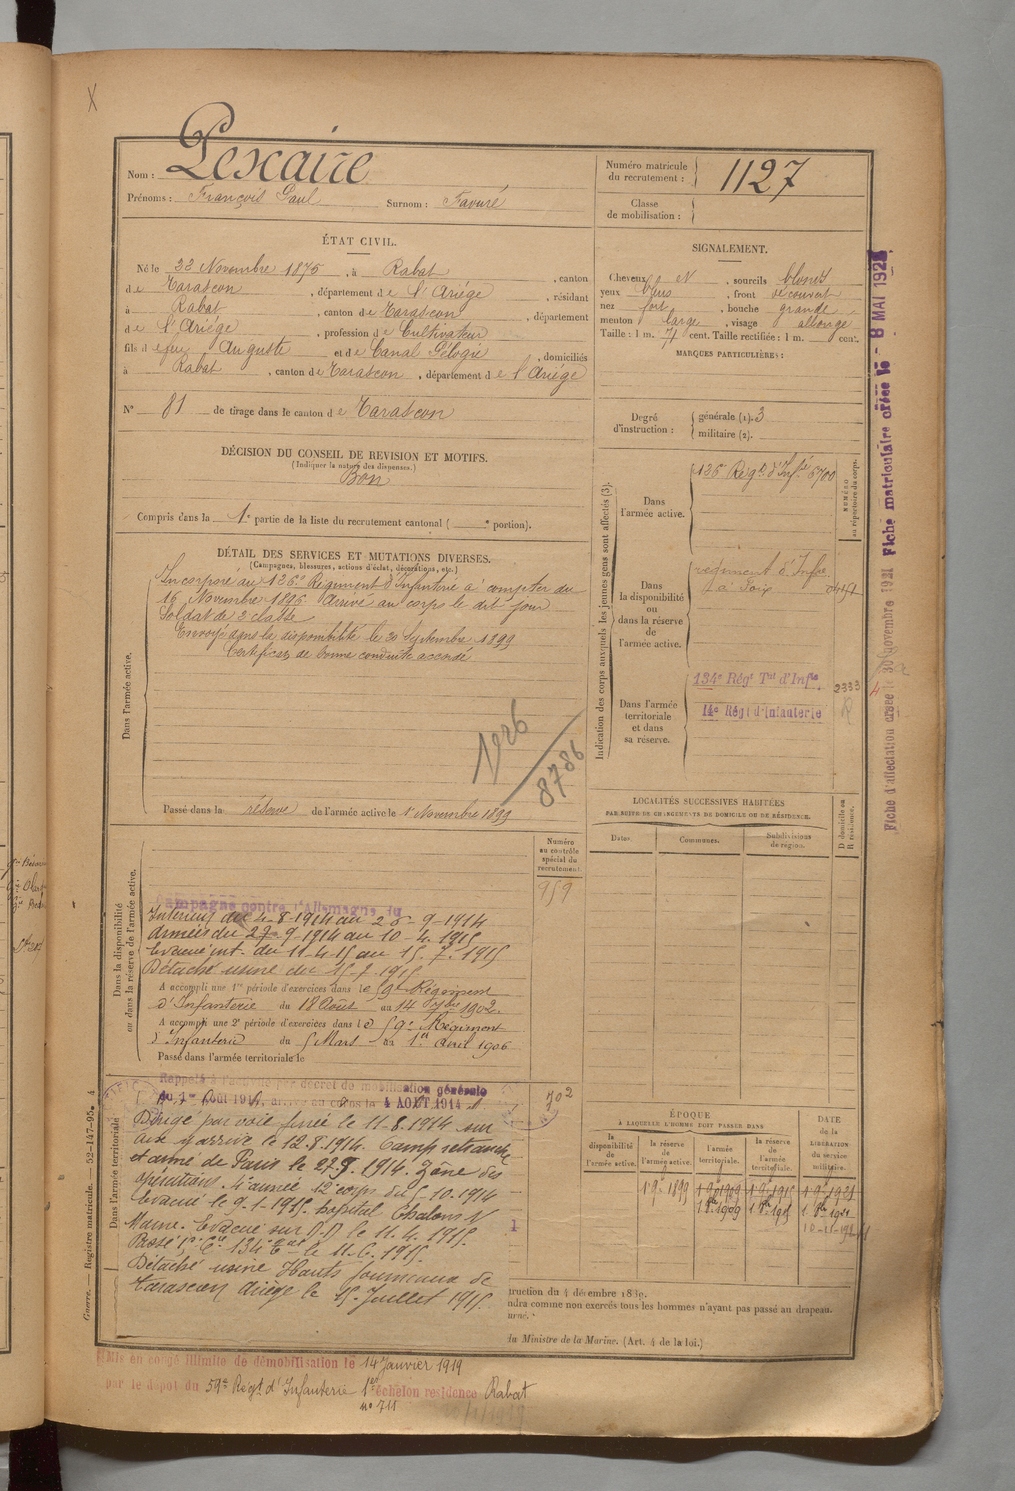 X
Nom : Pexaire
Prénoms : François Paul Surnom : Favuré
Numéro matricule du recrutement : 1127
Classe de mobilisation :
ÉTAT CIVIL.
Né le 22 Novembre 1875, à Rabat, canton
de Tarascon, département de l'Ariége, résidant
à Rabat, canton de Tarascon, département
de l'Ariége, profession de Cultivateur
fils de feu Auguste et de Canal Pélogie, domiciliés
à Rabat, canton de Tarascon, département de l'Ariége
N° 81 de tirage dans le canton de Tarascon
SIGNALEMENT.
Cheveux N, sourcils blonds
yeux gris, front découvert
nez fort, bouche grande
menton large, visage allongé
Taille : 1 m. 71 cent. Taille rectifiée : 1 m. cent.
MARQUES PARTICULIÈRES :
Degré d'instruction : générale (1). 3
militaire (2).
DÉCISION DU CONSEIL DE REVISION ET MOTIFS.
(Indiquer la nature des dispenses.)
Bon
Compris dans la 1e partie de la liste du recrutement cantonal ( e portion).
DÉTAIL DES SERVICES ET MUTATIONS DIVERSES.
(Campagnes, blessures, actions d'éclat, décorations, etc.)
Dans l'armée active.
Incorporé au 126e Régiment d'Infanterie à compter du
16 Novembre 1896 Arrivé au corps le dit jour
Soldat de 2e classe
Envoyé dans la disponibilité le 20 Septembre 1899
Certificat de bonne conduite accordé
1926
8786
Passé dans la réserve de l'armée active le 1r Novembre 1899
Indication des corps auxquels les jeunes gens sont affectés (3).
Dans l'armée active.
126 Régt d'Infie 6700
NUMÉRO au répertoire du corps.
Dans la disponibilité ou dans la réserve de l'armée active.
régiment d'Infie
à Foix
Dans l'armée territoriale et dans sa réserve.
134e Régt Tal d'Infie 2333
14e Régt d'Infanterie
LOCALITÉS SUCCESSIVES HABITÉES
PAR SUITE DE CHANGEMENTS DE DOMICILE OU DE RÉSIDENCE.
Dates. Communes. Subdivisions de région.
D domicile ou R résidence.
Dans la disponibilité ou dans la réserve de l'armée active.
Numéro au contrôle spécial du recrutement.
959
Campagne contre l'Allemagne du
Intérieur du 4-8-1914 au 26-9-1914
Armées du 27-9-1914 au 10-4-1915
Evacué int. du 11-4-15 au 15-7-1915
Détaché usine du 15-7-1915
A accompli une 1re période d'exercices dans le 59e Régiment
d'Infanterie du 18 Août au 14 7bre 1902
A accompli une 2e période d'exercices dans le 59e Régiment
d'Infanterie du 5 Mars au 1er Avril 1906
Passé dans l'armée territoriale le
Dans l'armée territoriale
Rappelé à l'activité par décret de mobilisation générale
du 1er Août 1914, arrivé au corps le 4 AOUT 1914
702
Dirigé par voie ferrée le 11-8-1914 sur
arrivé le 12.8.1914. Camp retranché
et armé de Paris le 27.9.1914. Zône des
opérations. 4e année 12e corps du 5-10-1914
Evacué le 9-1-1915. hopital Chalons s/
Marne. Evacué sur D.D le 11.4.1915.
Passé 134e le 11.6.1915.
Détaché usine Hauts fourneaux de
Tarascon Ariège le 15 Juillet 1915.
ÉPOQUE
À LAQUELLE L'HOMME DOIT PASSER DANS
la disponibilité de l'armée active.
la réserve de l'armée active.
l'armée territoriale.
la réserve de l'armée territoriale.
DATE de la LIBÉRATION du service militaire.
1 9e 1899 1 9e 1909 1 9e 1915 1 9e 1921
ruction du 4 décembre 1889.
ndra comme non exercés tous les hommes n'ayant pas passé au drapeau.
du Ministre de la Marine. (Art. 4 de la loi.)
Mis en congé illimité de démobilisation le 14 Janvier 1919
par le dépôt du 59e Régt d'Infanterie 1er échelon résidence Rabat
n° 711
Guerre. — Registre matricule. — 52-147-95. 4
Fiche d'affectation créée le 30 novembre 1921 Fiche matriculaire créée le - 8 MAI 1925